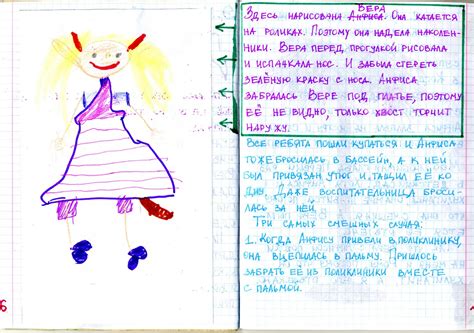 ВЕРА
ЗДЕСЬ НАРИСОВАНА АНФИСА. ОНА КАТАЕТСЯ
НА РОЛИКАХ. ПОЭТОМУ ОНА НАДЕЛА НАКОЛЕН-
НИКИ. ВЕРА ПЕРЕД ПРОГУЛКОЙ РИСОВАЛА
И ИСПАЧКАЛА НОС. И ЗАБЫЛА СТЕРЕТЬ
ЗЕЛЁНУЮ КРАСКУ С НОСА. АНФИСА
ЗАБРАЛАСЬ ВЕРЕ ПОД ПЛАТЬЕ, ПОЭТОМУ
ЕЁ НЕ ВИДНО, ТОЛЬКО ХВОСТ ТОРЧИТ
НАРУЖУ.
ВСЕ РЕБЯТА ПОШЛИ КУПАТЬСЯ И АНФИСА
ТОЖЕ БРОСИЛАСЬ В БАССЕЙН, А К НЕЙ
БЫЛ ПРИВЯЗАН УТЮГ И ТАЩИЛ ЕЁ КО
ДНУ. ДАЖЕ ВОСПИТАТЕЛЬНИЦА БРОСИ-
ЛАСЬ ЗА НЕЙ.
ТРИ САМЫХ СМЕШНЫХ СЛУЧАЯ:
1. КОГДА АНФИСУ ПРИВЕЛИ В ПОЛИКЛИНИКУ,
ОНА ВЦЕПИЛАСЬ В ПАЛЬМУ. ПРИШЛОСЬ
ЗАБРАТЬ ЕЁ ИЗ ПОЛИКЛИНИКИ ВМЕСТЕ
С ПАЛЬМОЙ.
6